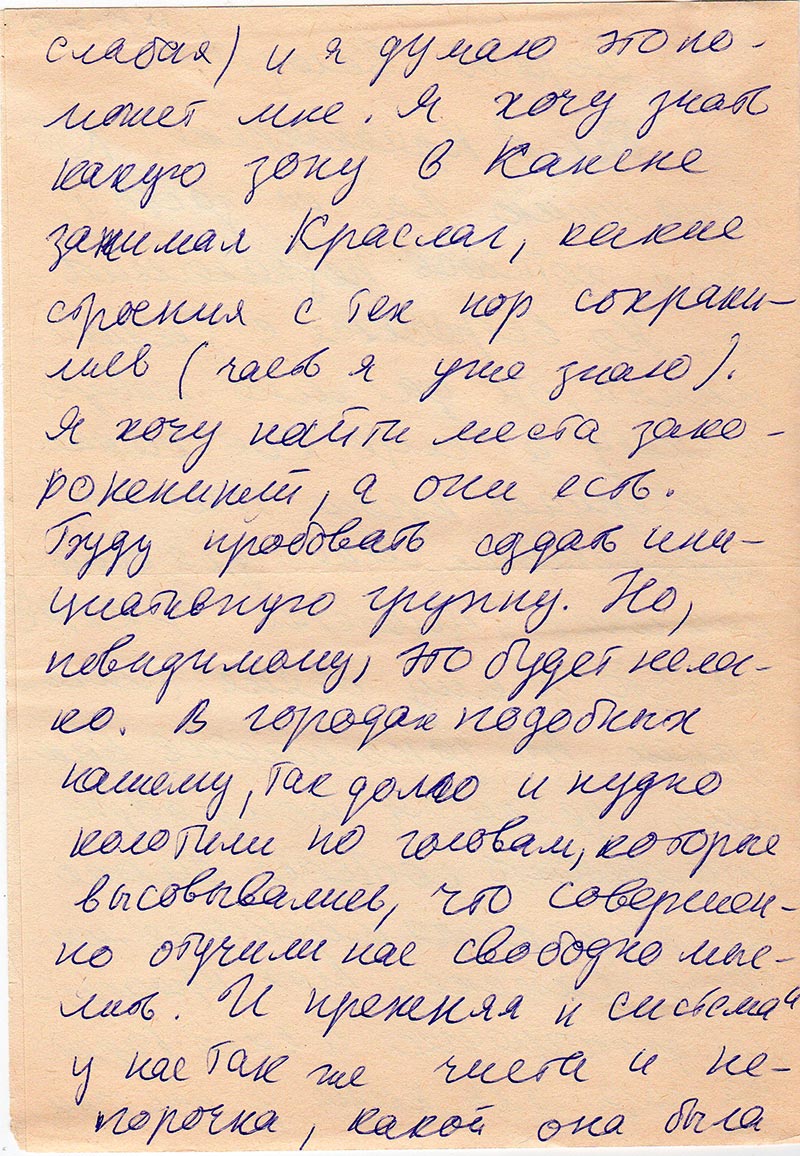 слабая) и я думаю это по-
может мне. Я хочу знать
какую зону в Канске
занимал Краслаг, какие
строения с тех пор сохрани-
лись (часть я уже знаю).
Я хочу найти места захо-
ронений, а они есть.
Буду пробовать создать ини-
циативную группу. Но,
повидимому, это будет нелег-
ко. В городах подобных
нашему, так долго и нудно
колотили по головам, которые
высовывались, что совершен-
но отучили нас свободно мыс-
лить. И прежняя и система
у нас так же чиста и не-
порочна, какой она была